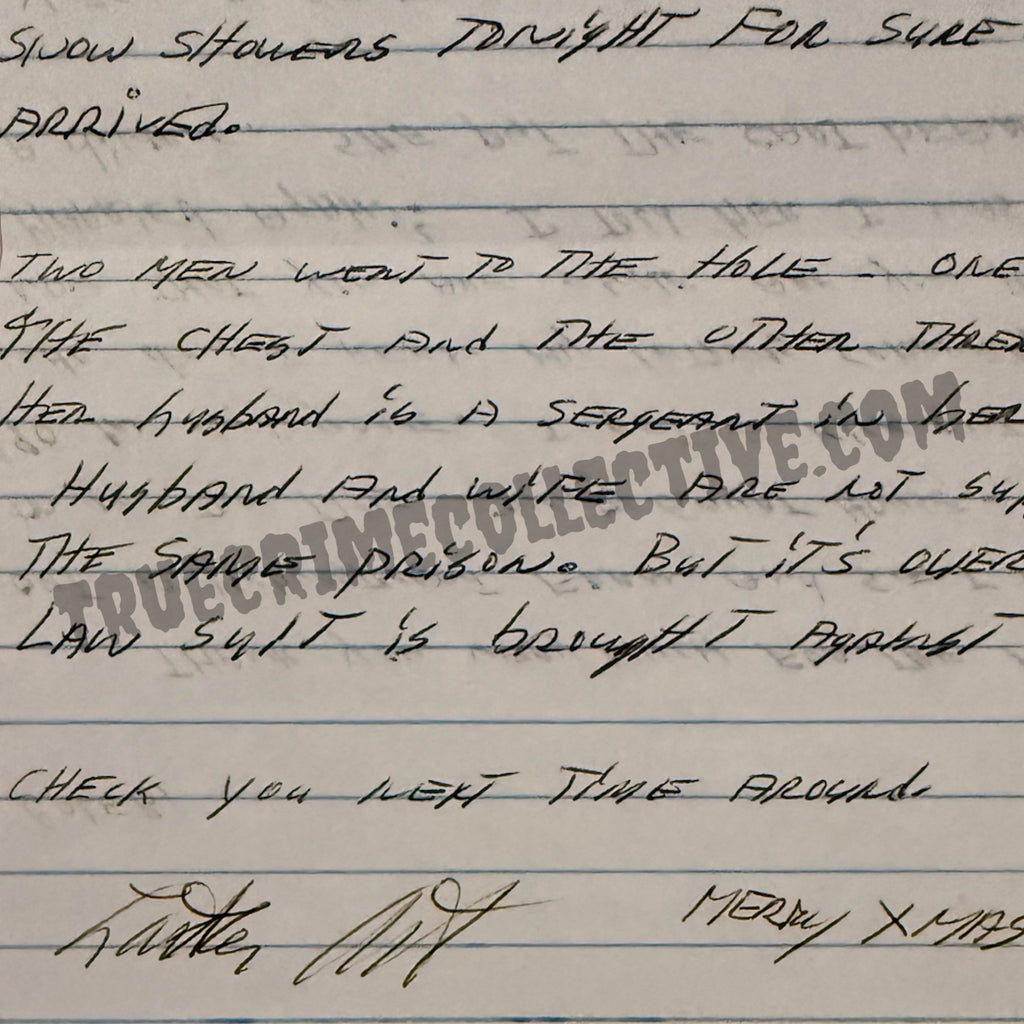 SNOW SHOWERS TONIGHT FOR SURE
ARRIVEd.
TWO MEN WENT TO THE HOLE - ONE
THE CHEST ANd THE OTHER THREA
HER husbANd is A SERGEANT iN hER
HusbANd ANd WiFE ARE NOT Sup
THE SAME pRisoN. BuT iT'S OVER
TRUECRIMECOLLECTIVE.COM
LAW SuiT is bROughT AgAiNsT
CHECK you NEXT TiME AROuNd.
MERRy XMAS